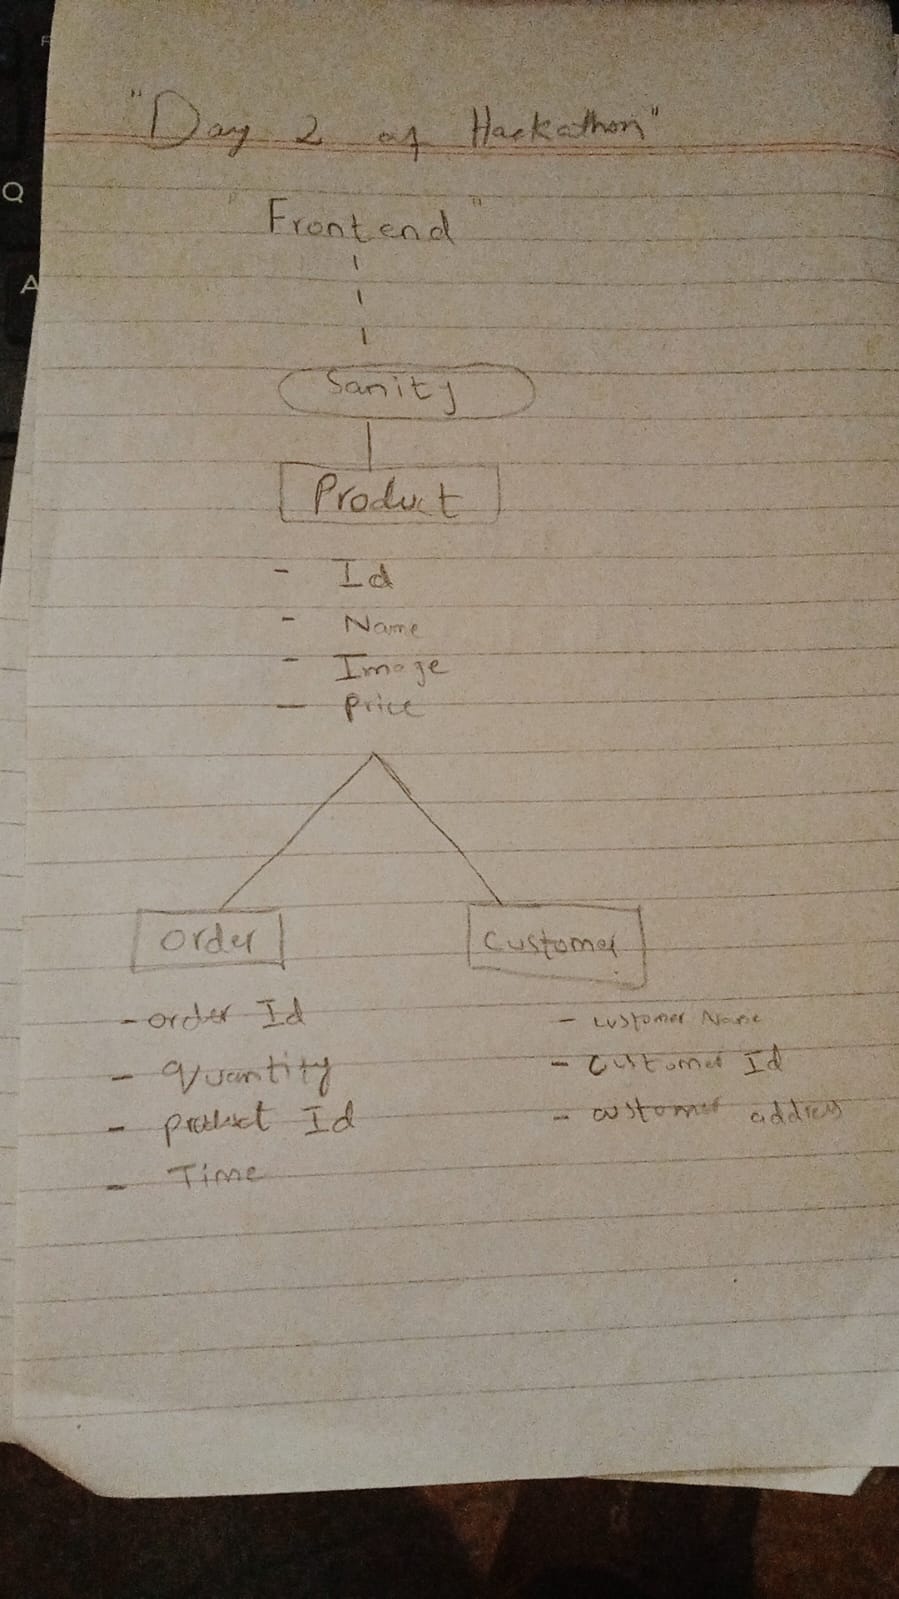 "Day 2 of Hackathon"
"Frontend"
Sanity
Product
- Id
- Name
- Image
- Price
Order
- order Id
- Quantity
- product Id
- Time
Customer
- customer Name
- customer Id
- customer address
Q
A